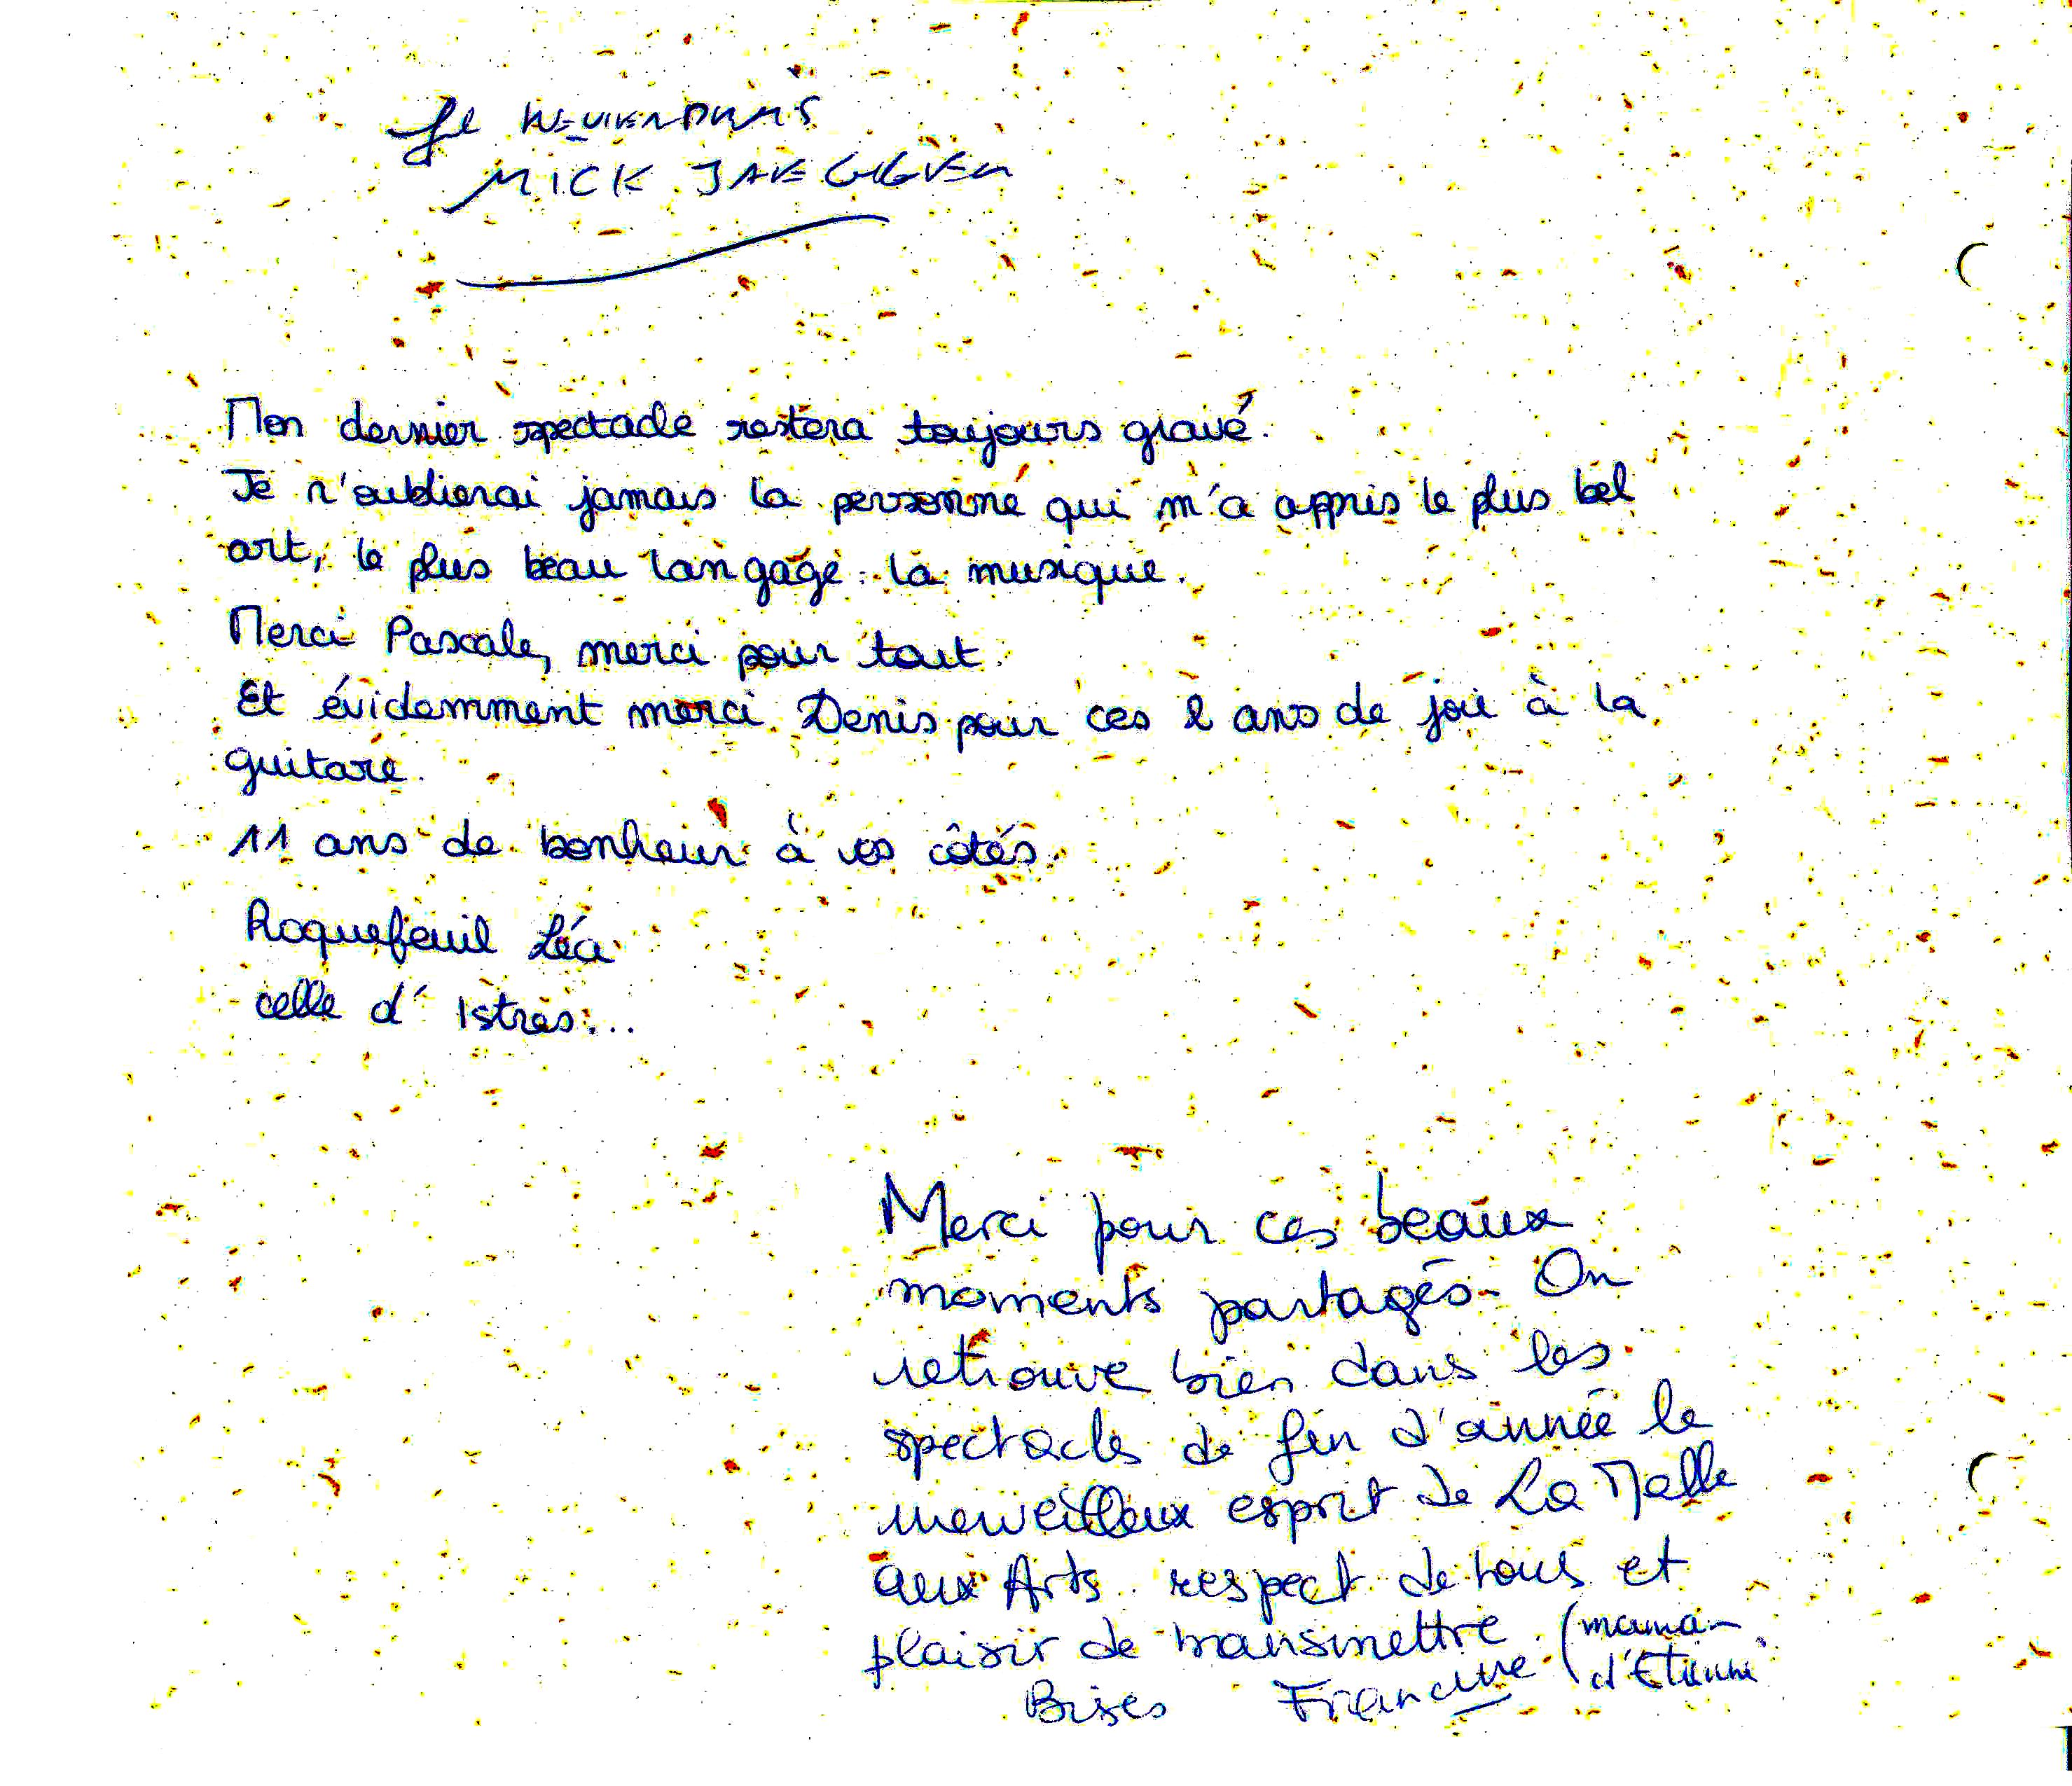 Je REVIENDRAIS
MICK JAEGGGER
Mon dernier spectacle restera toujours gravé.
Je n'oublierai jamais la personne qui m'a appris le plus bel
art, le plus beau langage : la musique.
Merci Pascale, merci pour tout.
Et évidemment merci Denis pour ces 2 ans de joie à la
guitare.
11 ans de bonheur à vos côtés.
Roquefeuil Léa
celle d'Istres...
Merci pour ces beaux
moments partagés - On
retrouve bien dans les
spectacles de fin d'année le
merveilleux esprit de La Malle
aux Arts respect de tous et
plaisir de transmettre. (maman
Bises Francine d'Etienne